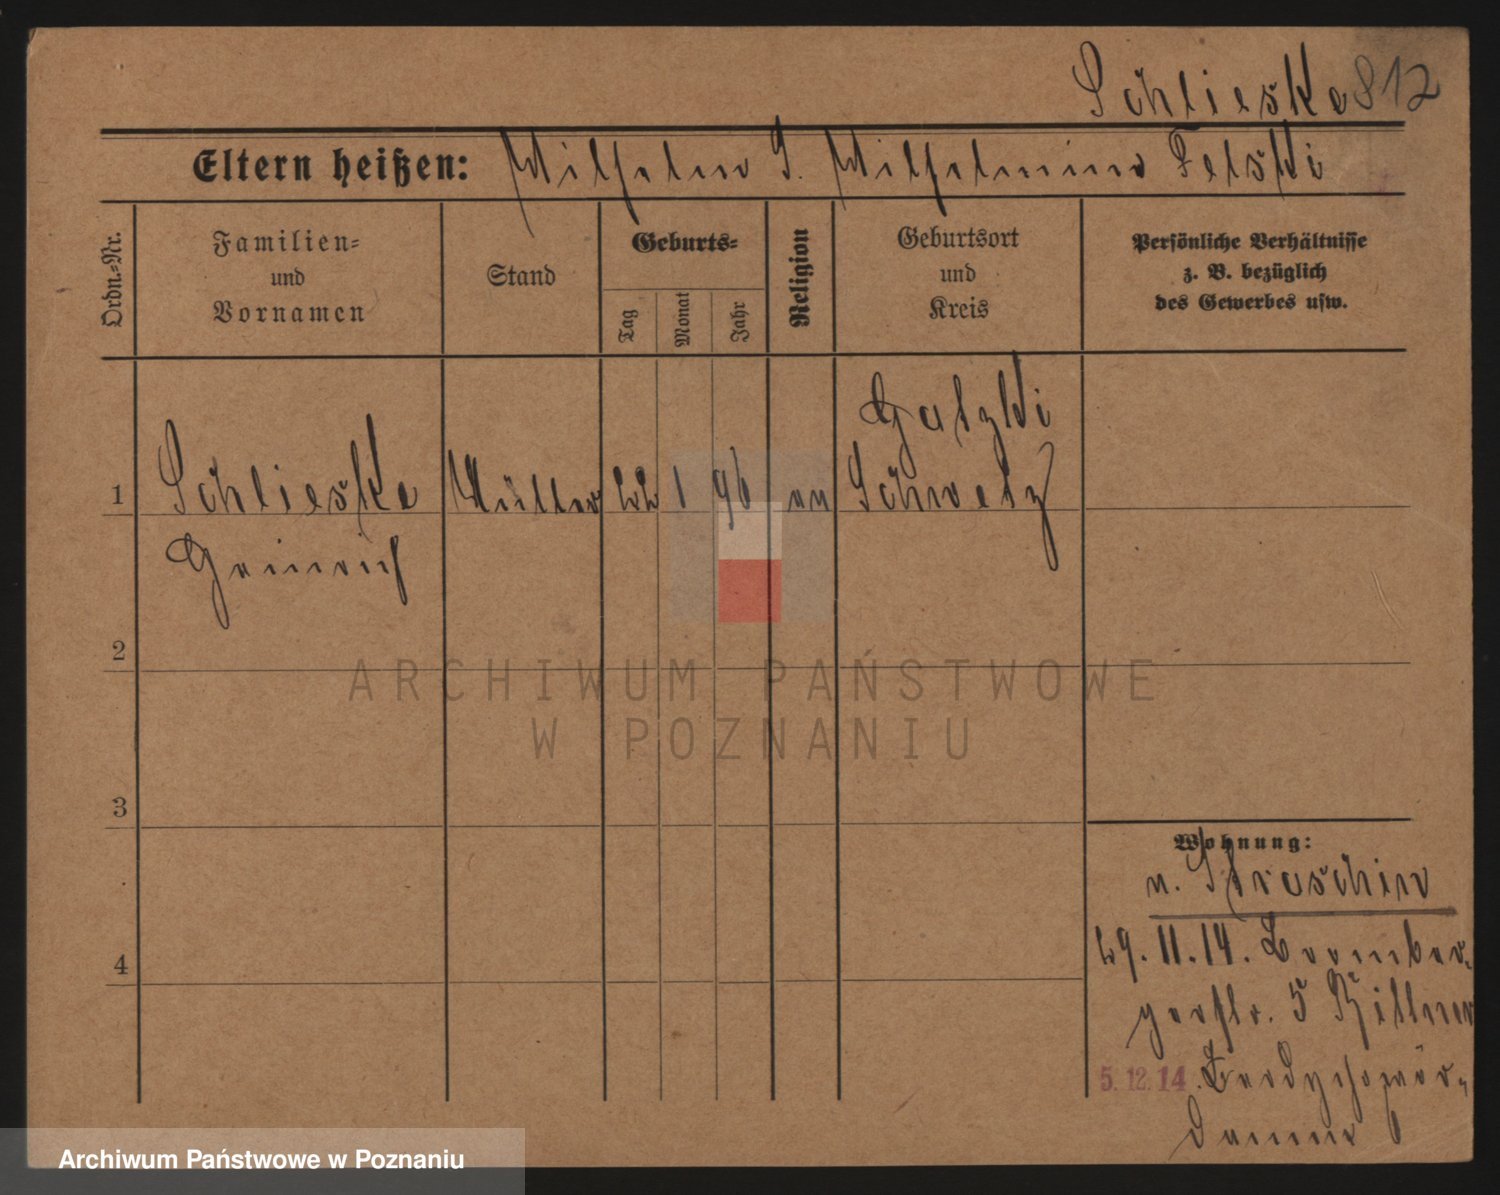 Schlieske 812
Eltern heißen: Wilhelm S. Wilhelmine Felski
Ordn.-Nr.
Familien-
und
Vornamen
Stand
Geburts-
Tag
Monat
Jahr
Religion
Geburtsort
und
Kreis
Persönliche Verhältnisse
z. B. bezüglich
des Gewerbes usw.
Gatzki
1 Schlieske Müller 22 1 96 ev Schwetz
Heinrich
2
3
4
Wohnung:
n. Straschin
29. 11. 14. Bromber-
gerstr. 5 Bittner
5.12.14.
damm 6
ARCHIWUM PAŃSTWOWE
W POZNANIU
Archiwum Państwowe w Poznaniu